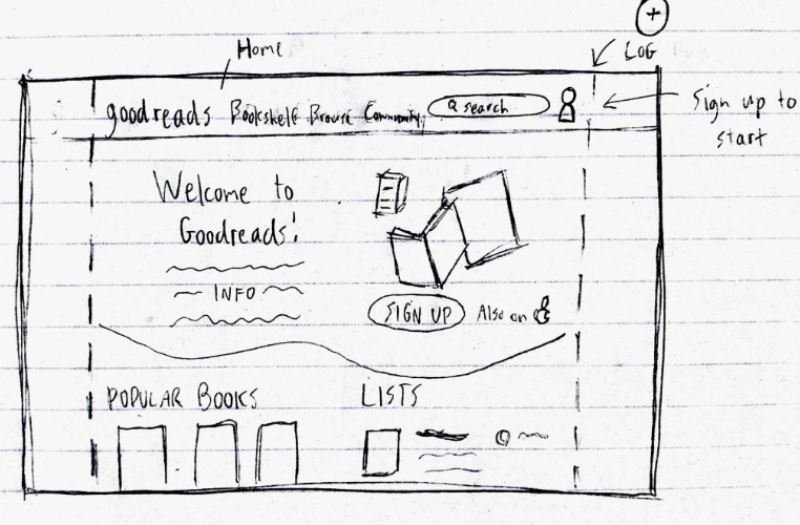 +
Home
LOG
goodreads Bookshelf Browse Community
search
Sign up to
start
Welcome to
Goodreads!
INFO
SIGN UP
Also on
POPULAR BOOKS
LISTS